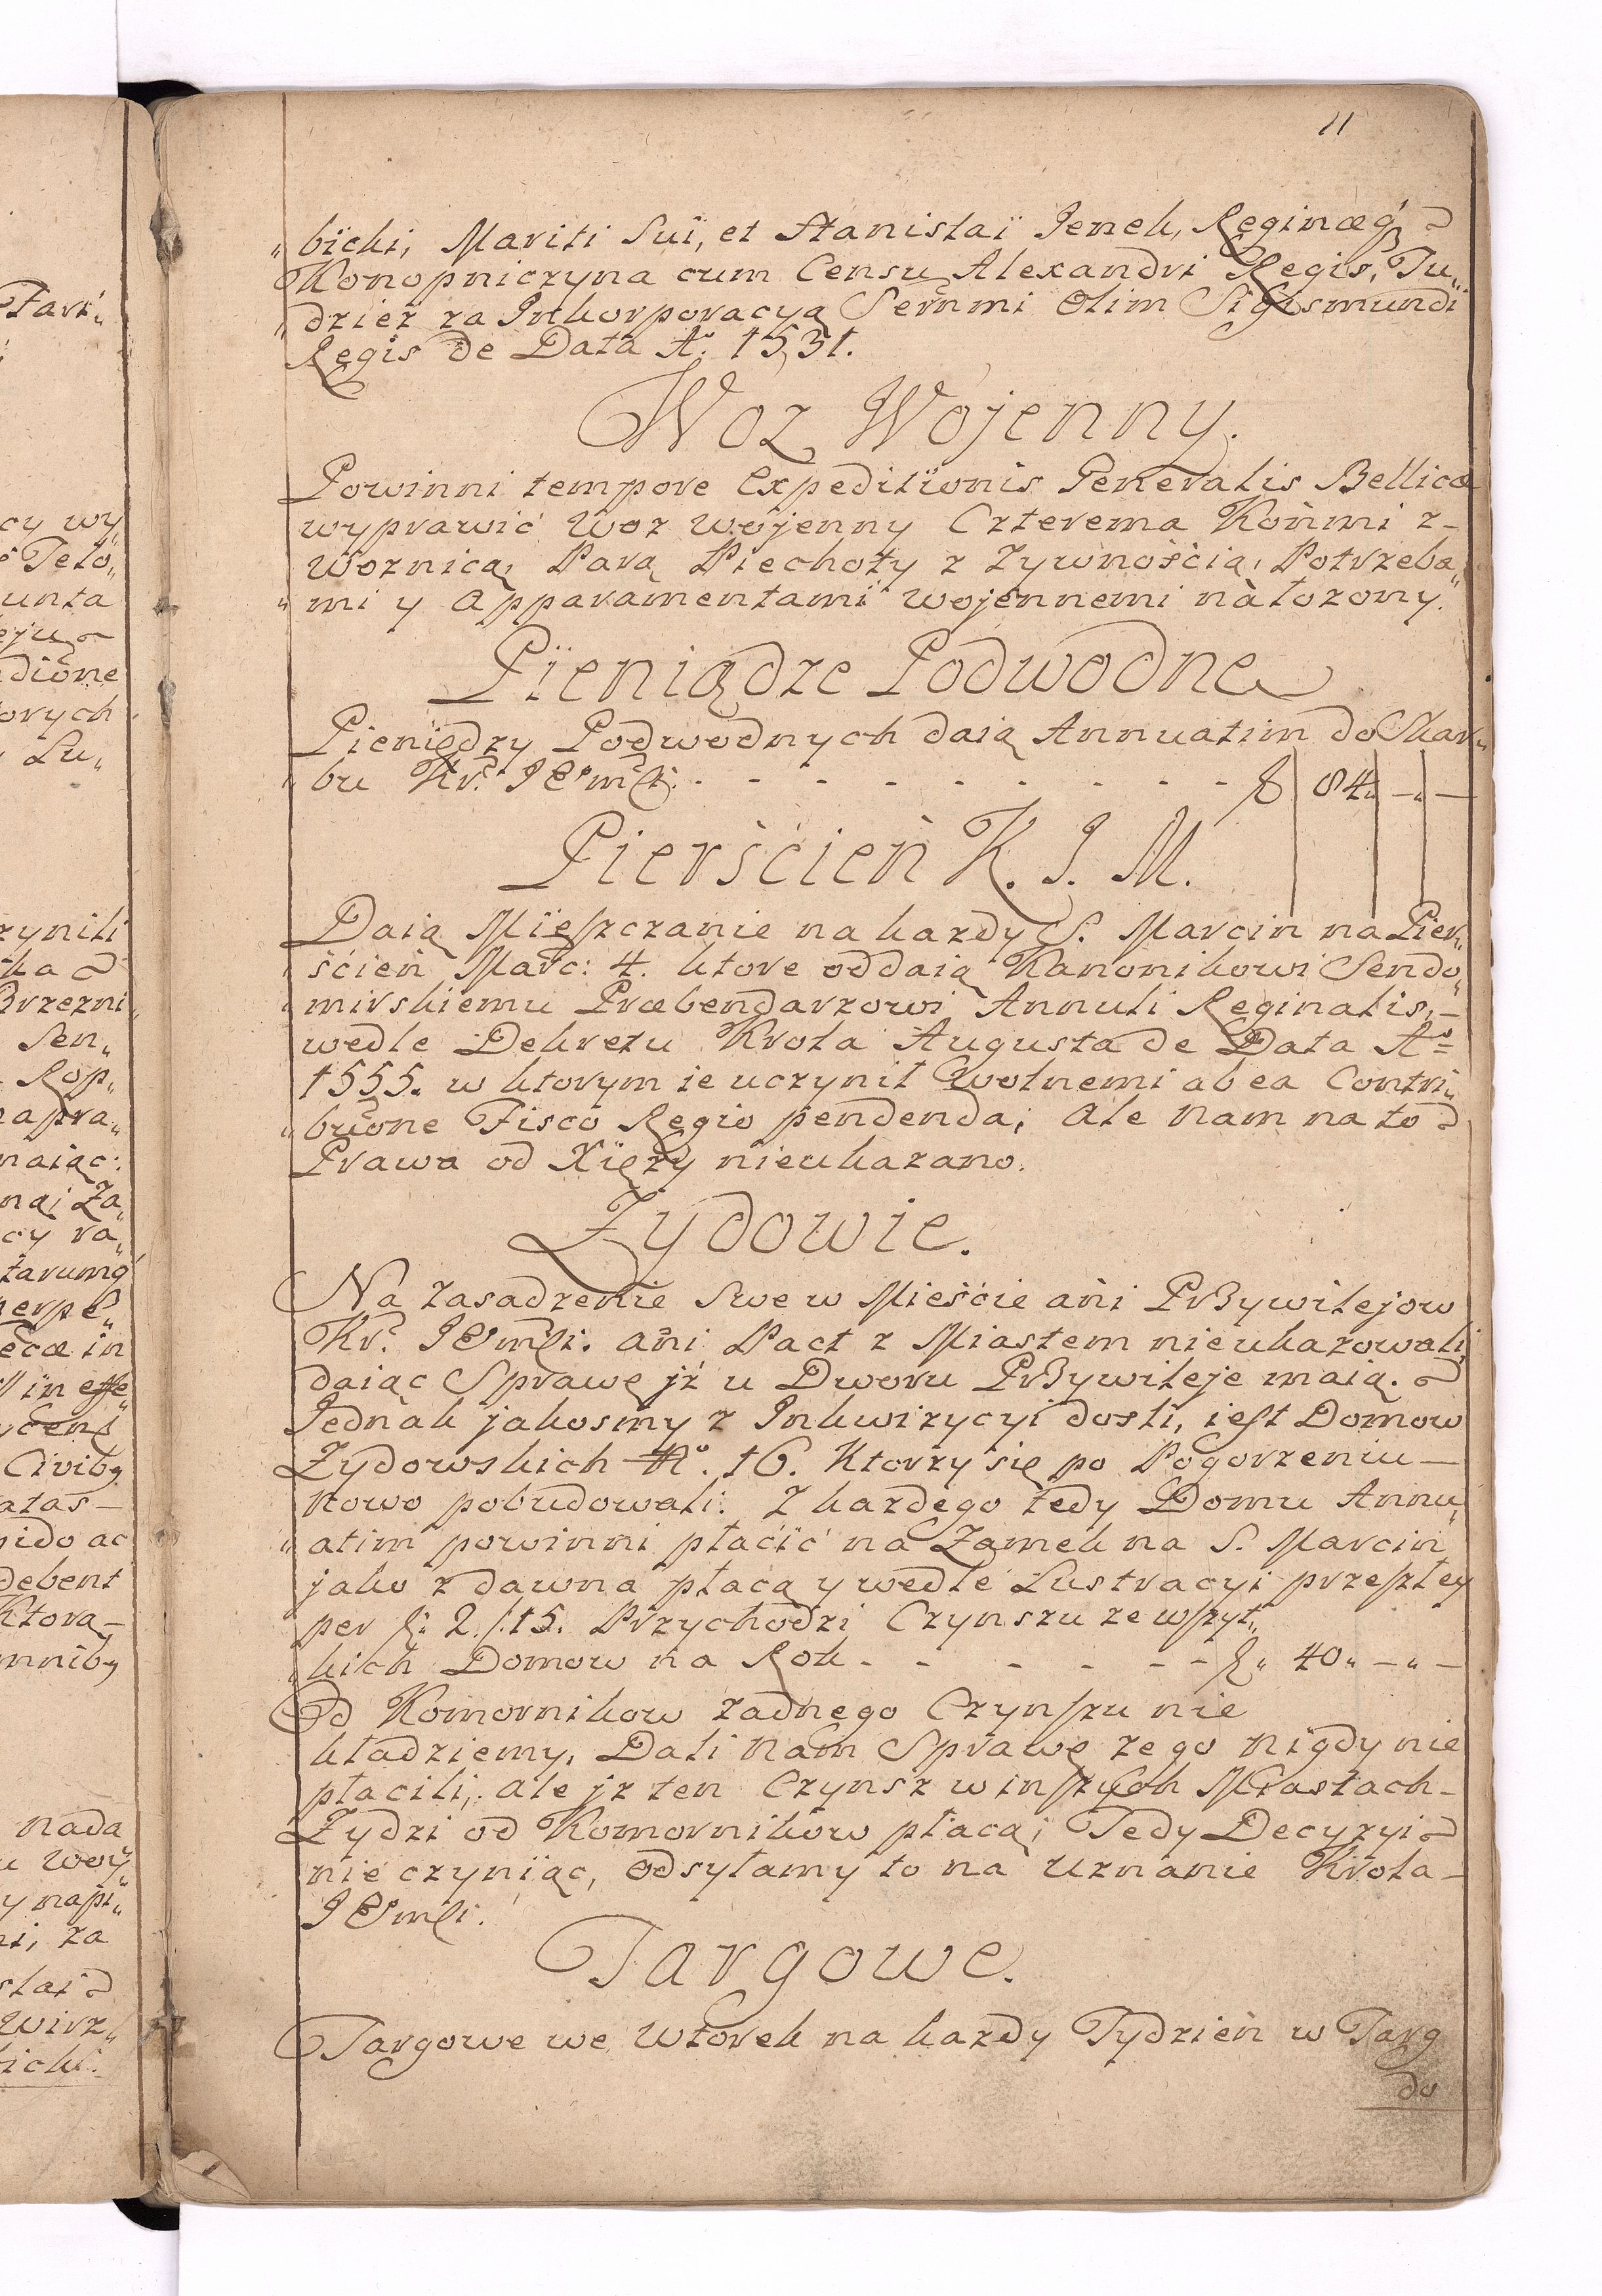 11
„bicki, Mariti Sui, et Stanislai Jenek, Reginæq́3
Konopniczyna cum Censu Alexandri Regis, Tu„
„dzież za Inkorporacyą Sernmi Olim Sigismundi
Regis de Data Aº. 1531.
Woz Wojenny.
Powinni tempore Expeditionis Generalis Bellicæ
wyprawić Woz wojenny Czterema Końmi z-
Woznicą, Parą Piechoty z Zywnośćią, Potrzeba„
„mi y Apparamentami wojennemi náłozony.
Pieniądze Podwodne
Pieniędzy Podwodnych daią Annuatim do Skar„
„bu Kr. JEºmśći. - - - - - - - - - f 84„ -„ -
Pierśćień K. J. M.
Daią Mieszczanie na kazdy S. Marcin na Pier„
„śćień Marc: 4. ktore oddaią Kanonikowi Sendo„
„mirskiemu Præbendarzowi Annuli Reginalis,-
wedle Dekretu Krola Augusta de Data Aº=
1555. w ktorym ie uczynił wolnemi ab ea Contri„
„buone Fisco Regio pendenda; Ale Nam na to
Prawa od Xięzy nieukazano.
Zydowie.
Na zasadzenie Swe w Mieśćie ani PrBywilejow
Kr. JEºmśći. ani Pact z Miastem nieukazowali,
daiąc Sprawę jż u Dworu PrBywileje maią.
Jednak jakosmy z Inkwizycyi dosli, iest Domow
Zydowskich Nº. 16. Ktorzy się po Pogorzeniu -
Nowo pobudowali. Z kazdego tedy Domu Annu„
„atim powinni płaćić na Zamek na S. Marcin
jako z dawna płacą y wedle Lustracyi przeszłey
per f: 2. /:15. Przychodzi Czynszu ze wszyt„
„kich Domow na Rok - - - - - - f„ 40„ -„ -
Od Komornikow zadnego Czynszu nie
kładziemy, Dali Nam Sprawę ze go nigdy nie
płacili, ale jz ten Czynsz w inszych Miastach-
Zydzi od Komornikow płacą; Tedy Decyzyi
nie czyniąc, odsyłamy to na uznanie Krola -
JEºmśći.
Targowe.
Targowe we Wtorek na kazdy Tydzień w Targ
do